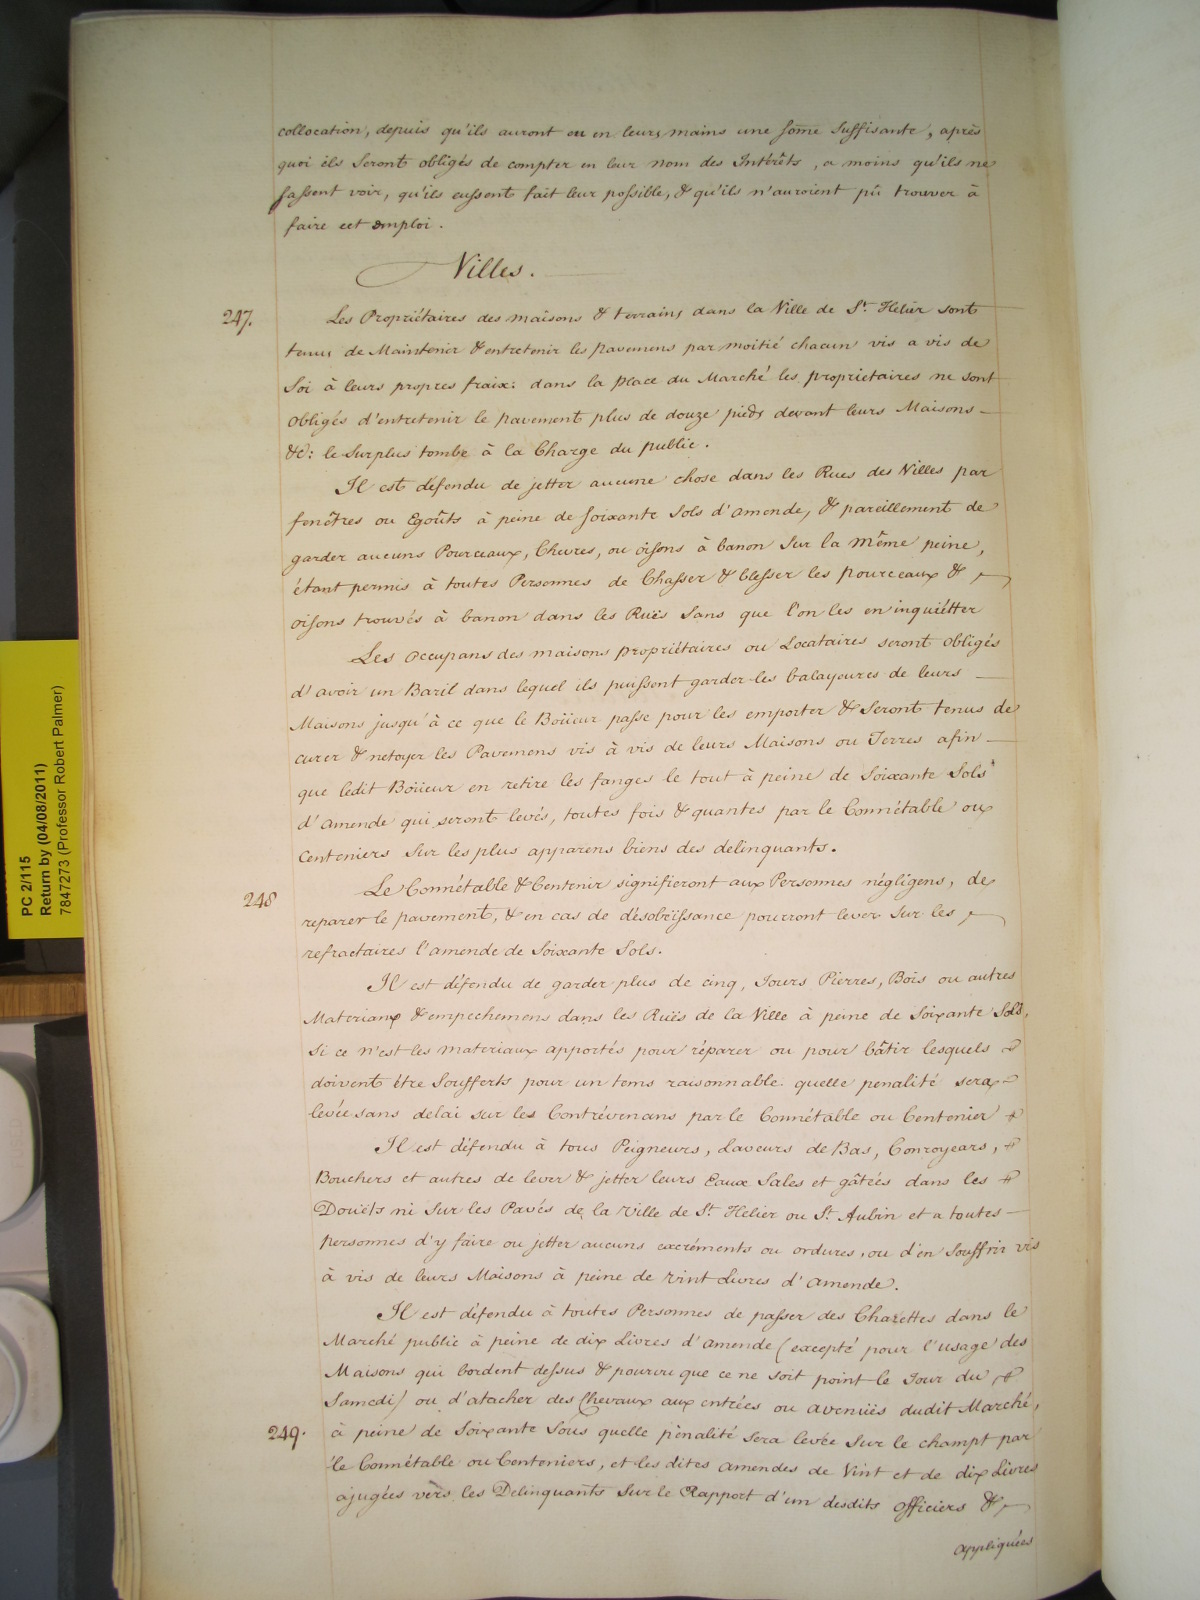 collocation, depuis qu'ils auront eu en leurs mains une some Suffisante, après
quoi ils Seront obligés de compter en leur nom des Intérêts, a moins qu'ils ne
fassent voir, qu'ils eussent fait leur possible, & qu'ils n'auroient pû trouver à
faire cet emploi.
Villes.
247.
Les Propriétaires des maisons & terrains dans la Ville de St. Helier sont
tenus de Maintenir & entretenir les pavemens par moitié chacun vis a vis de
Soi à leurs propres fraix: dans la Place du Marché les proprietaires ne sont
obligés d'entretenir le pavement plus de douze pieds devant leurs Maisons
&c: le Surplus tombe à la Charge du public.
Il est défendu de jetter aucune chose dans les Rues des Villes par
fenêtres ou Egoûts à peine de soixante Sols d'amende, & pareillement de
garder aucuns Pourceaux, Chevres, ou oisons à banon Sur la même peine,
étant permis à toutes Personnes de Chasser & blesser les pourceaux &
oisons trouvés à banon dans les Ruës Sans que l'on les en inquiétter
Les occupans des maisons propriétaires ou Locataires seront obligés
d'avoir un Baril dans lequel ils puissent garder les balayeures de leurs
Maisons jusqu'à ce que le Boüeur passe pour les emporter & Seront tenus de
curer & netoyer les Pavemens vis à vis de leurs Maisons ou Terres afin
que ledit Boüeur en retire les fanges le tout à peine de Soixante Sols
d'amende qui seront levés, toutes fois & quantes par le Connétable oux
Centeniers Sur les plus apparens biens des delinquants.
248
Le Connétable & Centenir signifieront aux Personnes négligens, de
reparer le pavement, & en cas de désobeïssance pourront lever Sur les
refractaires l'amende de Soixante Sols.
Il est défendu de garder plus de cinq, Jours Pierres, Bois ou autres
Materiaux & empechemens dans les Ruës de la Ville à peine de Soixante Sols,
Si ce n'est les materiaux apportés pour réparer ou pour bâtir lesquels
doivent étre Soufferts pour un tems raisonnable. quelle penalité sera
levée sans delai sur les Contrévenans par le Connétable ou Centenier
Il est défendu à tous Peigneurs, Laveurs de Bas, Conroyears,
Bouchers et autres de lever & jetter leurs Eaux Sales et gâtées dans les
Douëts ni Sur les Pavés de la Ville de St. Helier ou St. Aubin et a toutes
personnes d'y faire ou jetter aucuns excréments ou ordures, ou d'en Souffrir vis
à vis de leurs Maisons à peine de vint Livres d'amende.
Il est défendu à toutes Personnes de passer des Charettes dans le
Marché public à peine de dix Livres d'amende (excepté pour l'usage des
Maisons qui bordent dessus & pourvu que ce ne soit point le Jour du
Samedi) ou d'atacher des Chevaux aux entrées ou avenuës dudit Marché,
249.
à peine de Soixante Sous quelle pénalité Sera levée Sur le champt par
le Connétable ou Centeniers, et les dites amendes de Vint et de dix Livres
ajugées vers les Delinquants Sur le Rapport d'un desdits officiers &
appliquées
PC 2/115
Return by (04/08/2011)
7847273 (Professor Robert Palmer)